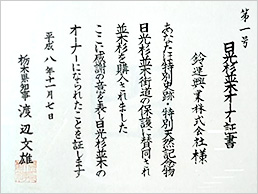 第一号
日光杉並木オーナー証書
鈴運興業株式会社様
あなたは特別史跡・特別天然記念物
日光杉並木街道の保護に賛同され
並木杉を購入されました
ここに感謝の意を表し日光杉並木の
オーナーになられたことを証します
平成八年十一月七日
栃木県知事 渡辺文雄